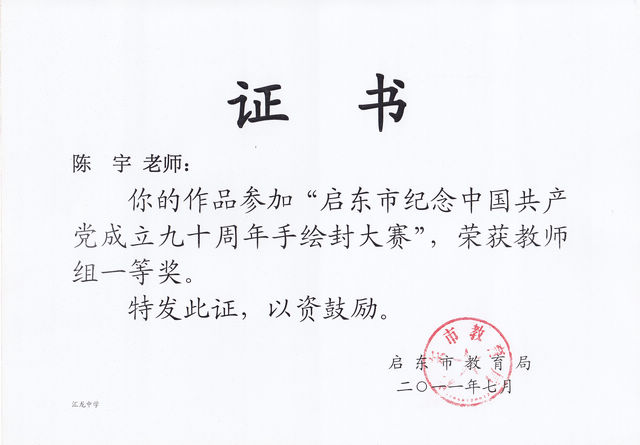 证 书
陈 宇 老师：
你的作品参加“启东市纪念中国共产
党成立九十周年手绘封大赛”，荣获教师
组一等奖。
特发此证，以资鼓励。
启东市教育局
二〇一一年七月
汇龙中学